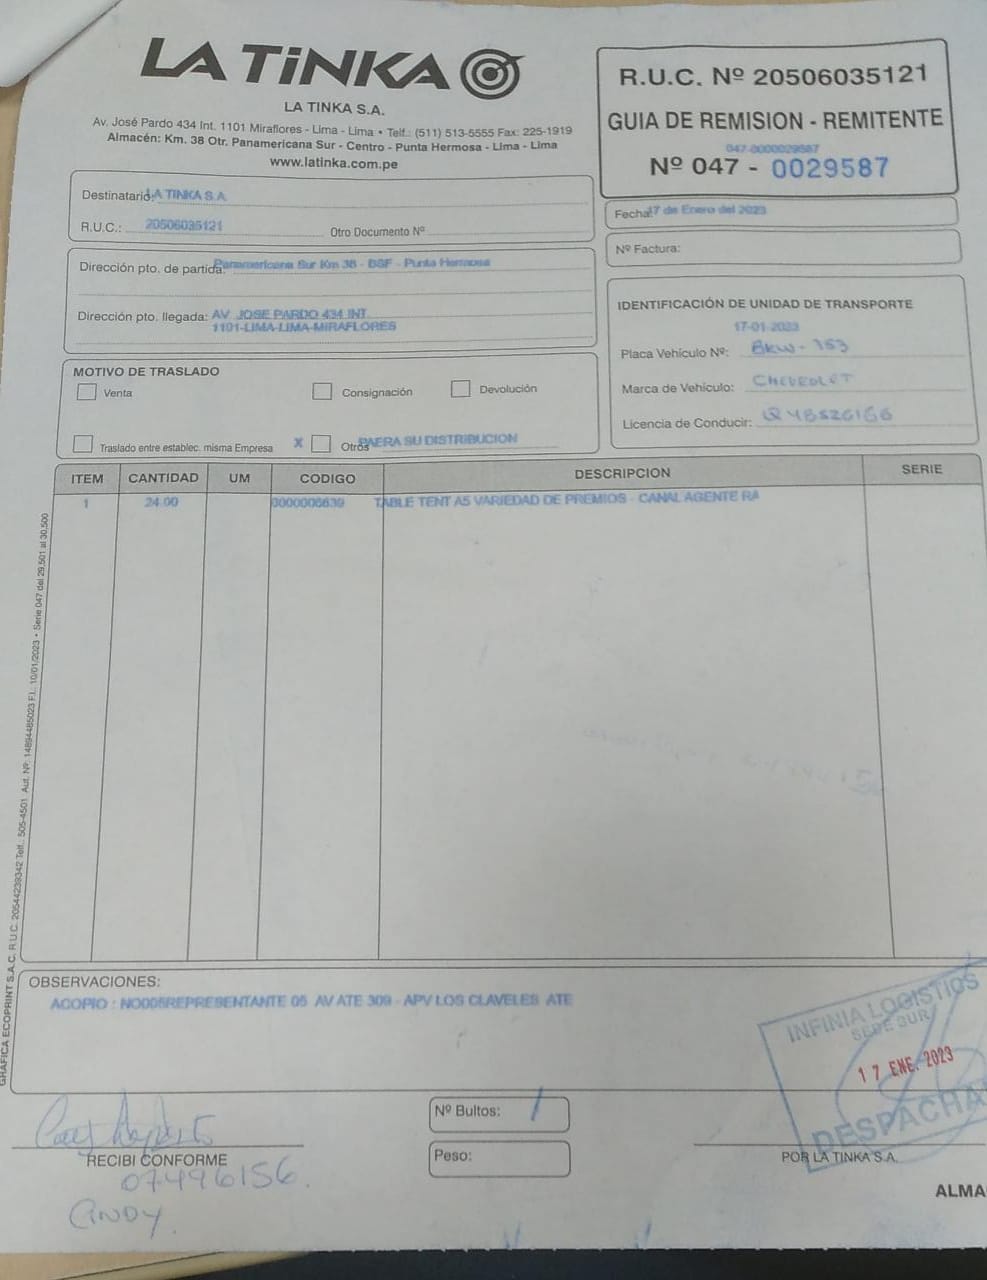 LA TiNKA
LA TINKA S.A.
Av. José Pardo 434 Int. 1101 Miraflores - Lima - Lima • Telf.: (511) 513-5555 Fax: 225-1919
Almacén: Km. 38 Otr. Panamericana Sur - Centro - Punta Hermosa - Lima - Lima
www.latinka.com.pe
R.U.C. Nº 20506035121
GUIA DE REMISION - REMITENTE
047-0000029587
Nº 047 - 0029587
Destinatario: LA TINKA S.A.
R.U.C.: 20506035121 Otro Documento Nº
Fecha: 17 de Enero del 2023
Nº Factura:
Dirección pto. de partida: Panamericana Sur Km 38 - BSF - Punta Hermosa
Dirección pto. llegada: AV. JOSE PARDO 434 INT.
1101-LIMA-LIMA-MIRAFLORES
IDENTIFICACIÓN DE UNIDAD DE TRANSPORTE
17-01-2023
Placa Vehículo Nº: BKW-753
Marca de Vehículo: CHEVROLET
Licencia de Conducir:
MOTIVO DE TRASLADO
Venta Consignación Devolución
Traslado entre establec. misma Empresa X Otros PAERA SU DISTRIBUCION
ITEM CANTIDAD UM CODIGO DESCRIPCION SERIE
1 24.00 0000006639 TABLE TENT A5 VARIEDAD DE PREMIOS - CANAL AGENTE RA
GRAFICA ECOPRINT S.A.C. R.U.C. 20544239342 Telf.: 505-4501 Aut. Nº: 14894485023 F.I.: 10/01/2023 • Serie 047 del 29,501 al 30,500
OBSERVACIONES:
ACOPIO : NO005REPRESENTANTE 05 AV ATE 309 - APV LOS CLAVELES ATE
INFINIA LOGISTIOS
SEDE SUR
17 ENE. 2023
DESPACHA
Nº Bultos: 1
Peso:
RECIBI CONFORME
07496156.
CINDY.
POR LA TINKA S.A.
ALMA